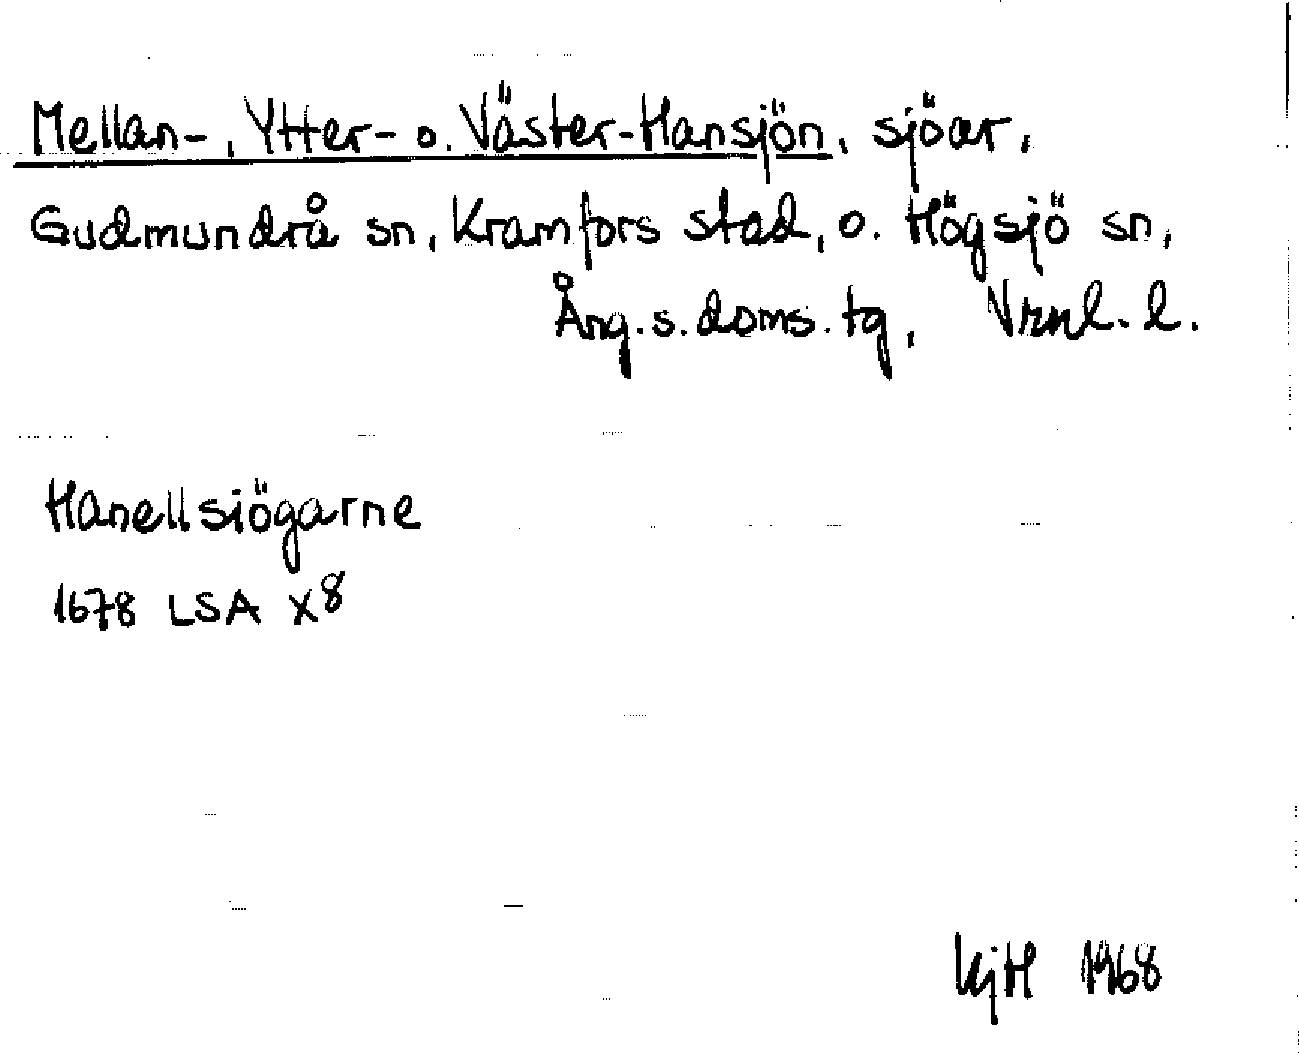 Mellan-, Ytter- o. Väster-Hansjön, sjöar,
Gudmundrå sn, Kramfors stad, o. Högsjö sn,
Ång. s. doms. tg, Vrnl. l.
Hanellsiögarne
1678 LSA X8
KjH 1968